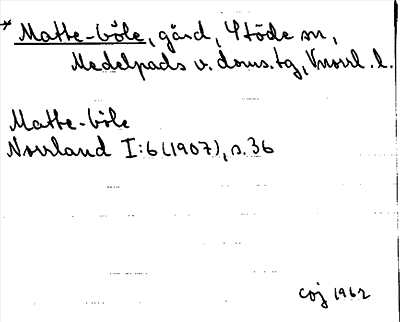 *Matte-böle, gård, Stöde sn,
Medelpads v. doms.tg, Vnorrl. l.
Matte-böle
Norrland I:6 (1907), s. 36
coj 1962